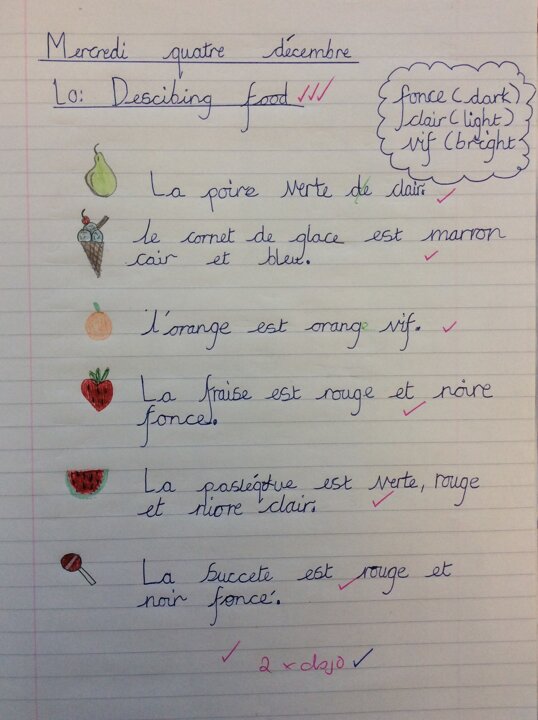 Mercredi quatre décembre
Lo: Descibing food
fonce (dark)
clair (light)
vif (bright
La poire verte de clair.
le cornet de glace est marron
cair et bleu.
l'orange est orange vif.
La fraise est rouge et noire
fonce.
La pasléque est verte, rouge
et niore clair.
La succete est rouge et
noir foncé.
2 x dojo